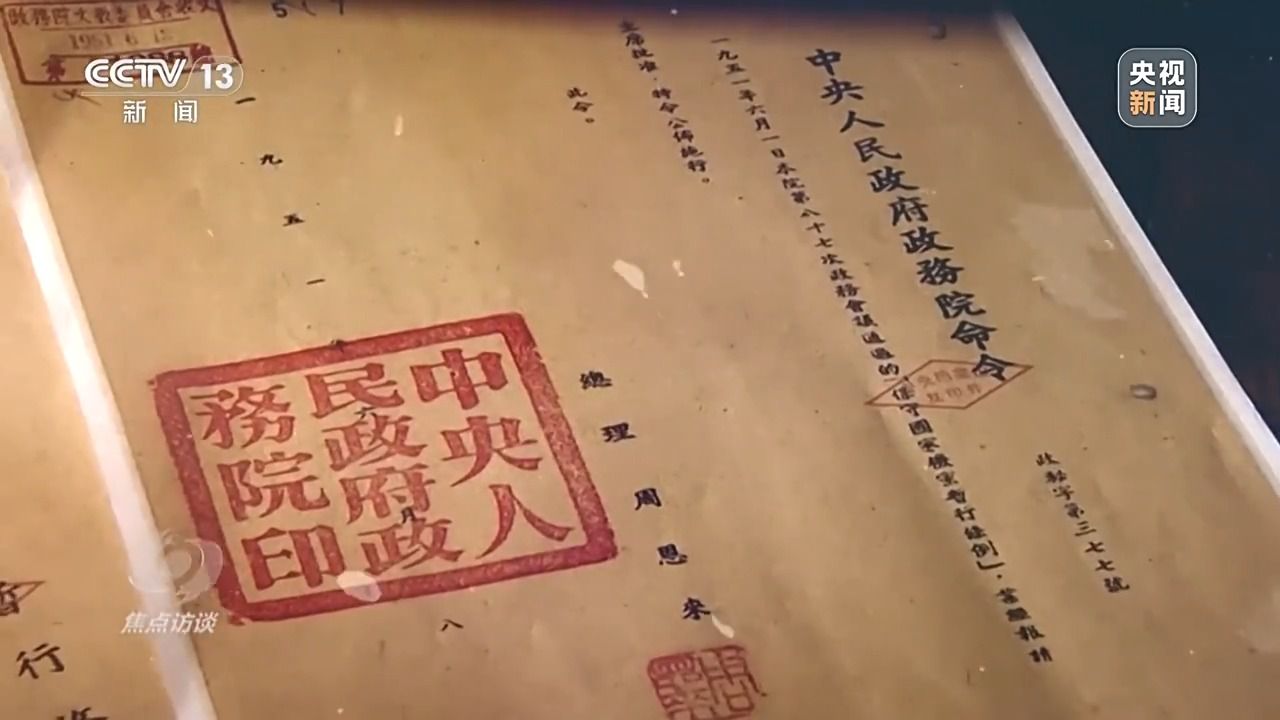 CCTV 13
新闻
央视
新闻
中央人民政府政務院命令
政秘字第三七七號
一九五一年六月一日本院第八十七次政務會議通過的「保守國家機密暫行條例」，當經報請
主席批准，特令公佈施行。
此令。
總理周恩來
一九五一年六月八
中央人
民政府政
務院印
1951 6
暫行
焦点访谈